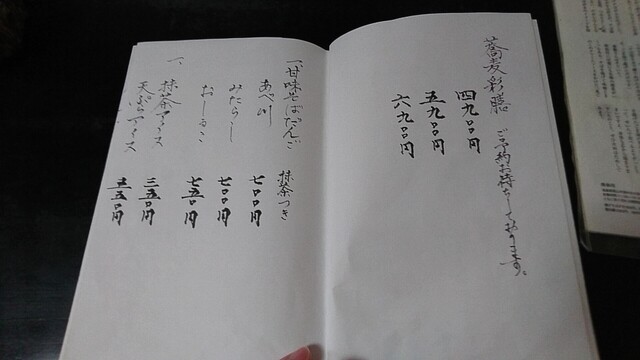 蕎麦彩膳 ご予約お待ちしております。
四九〇〇円
五九〇〇円
六九〇〇円
一、甘味そばだんご 抹茶つき
あべ川 七〇〇円
みたらし 七〇〇円
おしるこ 七五〇円
一、抹茶アイス 三五〇円
天ぷらアイス 五五〇円